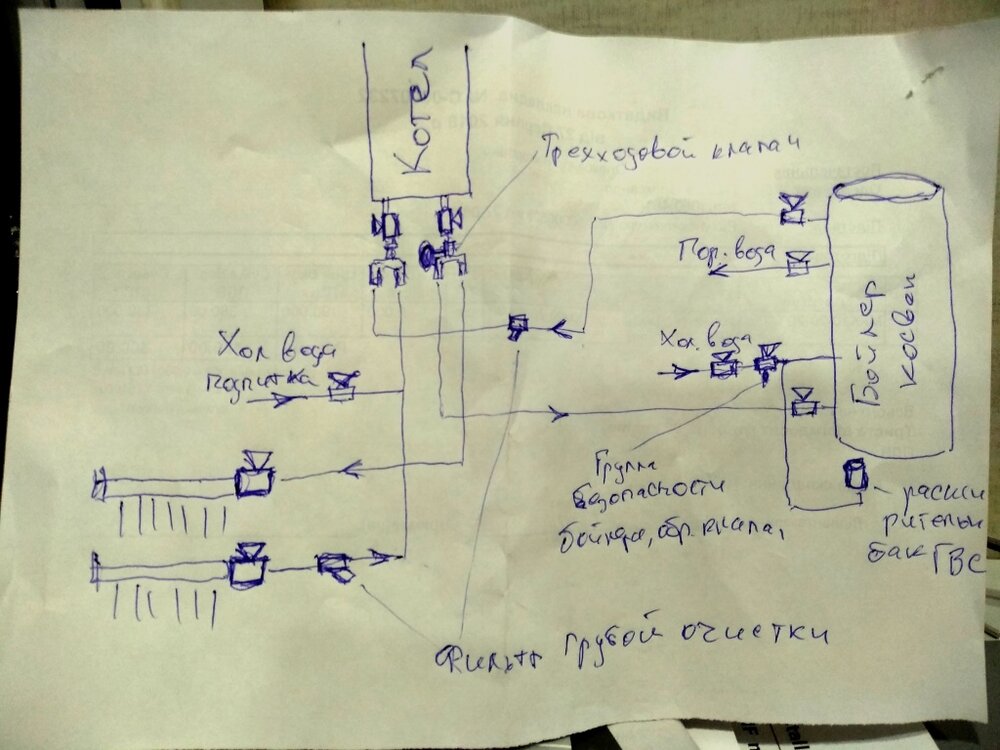 Котел
Трехходовой клапан
Гор. вода
Хол. вода
Бойлер
косвен
Хол вода
подпитка
Группа
безопасности
бойлера, обр. клапа,
расши
рительн
бак ГВС
Фильтр грубой очистки